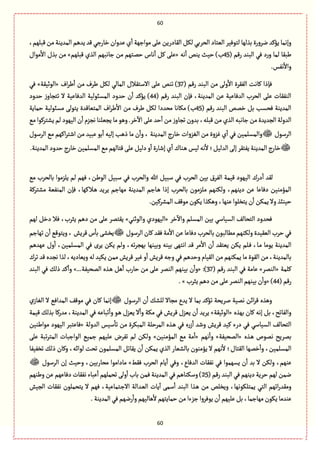 60
وإنما يؤكد ضرورة بذلها لتوفير العتاد الحربي لكل القادرين على مواجهة أي عدوان خارجي قد يدهم المدينة من قبلهم ،
طبقا لما ورد في البند رقم (45ب) حيث ينص أنه «على كل أناس حصتهم من جانبهم الذي قبلهم» من بذل الأموال
والأنفس.
فإذا كانت الفقرة الأولى من البند رقم (37) تنص على الاستقلال المالي لكل طرف من أطراف «الوثيقة» في
النفقات على الحرب الدفاعية عن المدينة ، فإن البند رقم (44) يؤكد أن حدود المسئولية الدفاعية لا تتجاوز حدود
المدينة فحسب بل خصص البند رقم (45ب) مكانا محددا لكل طرف من الأطراف المتعاقدة يتولى مسئولية حماية
الدولة الجديدة من جانبه الذي من قبله ، بدون تجاوز من أحد على الآخر. وهو ما يجعلنا نجزم أن اليهود لم يشتركوا مع
الرسول ﷺ والمسلمين في أي غزوة من الغزوات خارج المدينة ، وأن ما ذهب إليه أبو عبيد من اشتراكهم مع الرسول
ﷺ خارج المدينة يفتقر إلى الدليل ؛ لأنه ليس هناك أي إشارة أو دليل على قتالهم مع المسلمين خارج حدود المدينة.
لقد أدرك اليهود قيمة الفرق بين الحرب في سبيل الله والحرب في سبيل الوطن ، فهم لم يلزموا بالحرب مع
المؤمنين دفاعا عن دينهم ، ولكنهم ملزمون بالحرب إذا هاجم المدينة مهاجم يريد هلاكها ، فإن المنفعة مشتركة
حينئذ ولا يمكن أن يتخلوا عنها ، وهكذا يكون موقف المشركين.
فحدود التحالف السياسي بين المسلم والآخر «اليهودي والوثني» يقتصر على من دهم يثرب ، فلا دخل لهم
في حرب العقيدة ولكنهم مطالبون بالحرب دفاعا عن الأمة فقد كان الرسول ﷺ يخشى بأس قريش ، ويتوقع أن تهاجم
المدينة يوما ما ، فلم يكن يعتقد أن الأمر قد انتهى بينه وبينها بهجرته ، ولم يكن يرى في المسلمين ، أول عهدهم
بالمدينة ، من القوة ما يمكنهم من القيام وحدهم في وجه قريش أو غير قريش ممن يكيد له ويعاديه ، لذا نجده قد ترك
كلمة «النصر» عامة في البند رقم (37) «وأن بينهم النصر على من حارب أهل هذه الصحيفة...» وأكد ذلك في البند
رقم (44) «وأن بينهم النصر على من دهم يثرب» .
وهذه قرائن نصية صريحة تؤكد بما لا يدع مجالا للشك أن الرسول ﷺ إنما كان في موقف المدافع لا الغازي
والفاتح ، بل إنه كان بهذه «الوثيقة» يريد أن يعزل قريش في مكة وألا يعزل هو وأتباعه في المدينة ، مدركا بذلك قيمة
التحالف السياسي في درء كيد قريش وشد أزره في هذه المرحلة المبكرة من تأسيس الدولة «فاعتبر اليهود مواطنين
بصريح نصوص هذه «الصحيفة» وأنهم «أمة مع المؤمنين» ولكن لم تفرض عليهم جميع الواجبات المترتبة على
المسلمين ، وأخصها القتال ؛ لأنهم لا يؤمنون بالشعار الذي يمكن أن يقاتل المسلمون تحت لوائه ، وكان ذلك تخفيفا
عنهم ، ولكن لا بد أن يسهموا في نفقات الدفاع ، وفي أيام الحرب فقط «مادموا محاربين ، وحيث إن الرسول ﷺ
ضمن لهم حرية دينهم في البند رقم (25) وسكناهم في المدينة فمن باب أولى تحملهم أعباء نفقات دفاعهم عن وطنهم
ومقدراتهم التي يمتلكونها ، ويخلص من هذا البند أسمى آيات العدالة الاجتماعية ، فهم لا يتحملون نفقات الجيش
عندما يكون مهاجما ، بل عليهم أن يوفروا جزءا من حمايتهم لأهاليهم وأرضهم في المدينة .
60